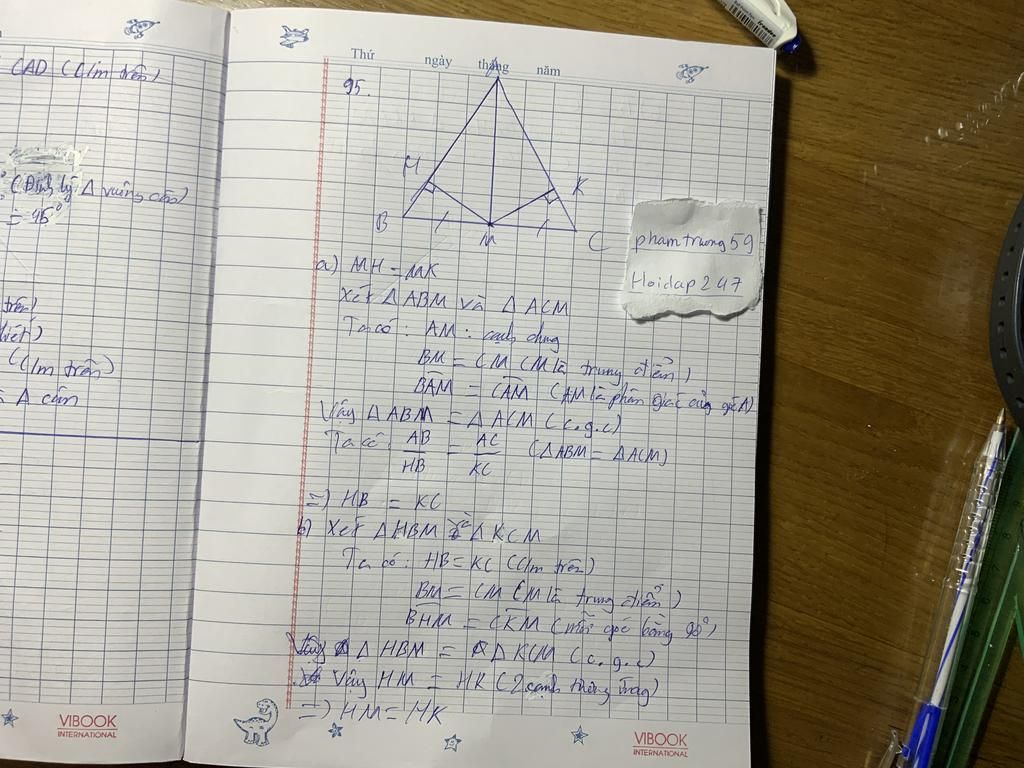 CAD (C/m trên)
(Định lý Δ vuông cân)
= 45°
trên)
(C/m trên)
à Δ cân
Thứ ngày tháng năm
95.
A
H
K
B
M
C
phamtruong59
Hoidap247
a) MH = MK
Xét Δ ABM và Δ ACM
Ta có: AM: cạnh chung
BM = CM (M là trung điểm)
BAM = CAM (AM là phân giác của góc A)
Vậy Δ ABM = Δ ACM (c.g.c)
Ta có: AB/HB = AC/KC (ΔABM = ΔACM)
=) HB = KC
b) Xét Δ HBM và Δ KCM
Ta có: HB = KC (C/m trên)
BM = CM (M là trung điểm)
BHM = CKM (mỗi góc bằng 90°)
Vậy Δ HBM = Δ KCM (c.g.c)
Vậy HM = HK (2 cạnh tương ứng)
=) HM = MK
VIBOOK
INTERNATIONAL
VIBOOK
INTERNATIONAL